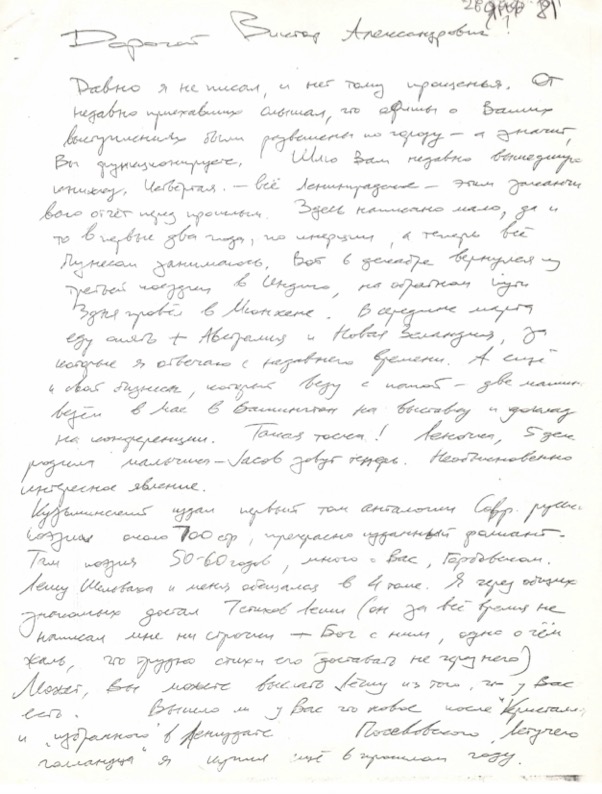 81
Дорогой Виктор Александрович!
Давно я не писал, и нет тому прощенья. От
недавно приехавших слышал, что афиши о Ваших
выступлениях были развешены по городу – а значит,
Вы функционируете. Шлю Вам недавно вышедшую
книжку. Четвёртая. – всё Ленинградское – этим заканчи
ваю отчёт перед прошлым. Здесь написано мало, да и
то в первые два года, по инерции, а теперь всё
бизнесом занимаюсь. Вот в декабре вернулся из
третьей поездки в Индию, на обратном пути
3 дня провёл в Мюнхене. В середине марта
еду опять + Австралия и Новая Зеландия, за
которые я отвечаю с недавнего времени. А ещё
и свой бизнес, который веду с папой – две машин
везём в мае в Вашингтон на выставку и доклад
на конференции. Такая тоска! Леночка, 5 дек
родила мальчика – Jacob зовут теперь. Необыкновенно
интересное явление.
Кузьминский издал первый том антологии Совр. русск.
поэзии около 700 стр, прекрасно изданный фолиант.
Там поэзия 50-60 годов, много о Вас, Горбовском.
Лёшу и меня обещался в 4 томе. Я через общих
знакомых достал 7 стихов Лёши (он за всё время не
написал мне ни строчки – Бог с ним, одно о чём
жаль, что трудно стихи его доставать не через него)
Может, Вы можете выслать Лёшу из того, что у Вас
есть. Вышло ли у Вас что новое после "Кристалл
и "избранного" в Лениздате. "Летучего
голландца" я купил ещё в прошлом году.